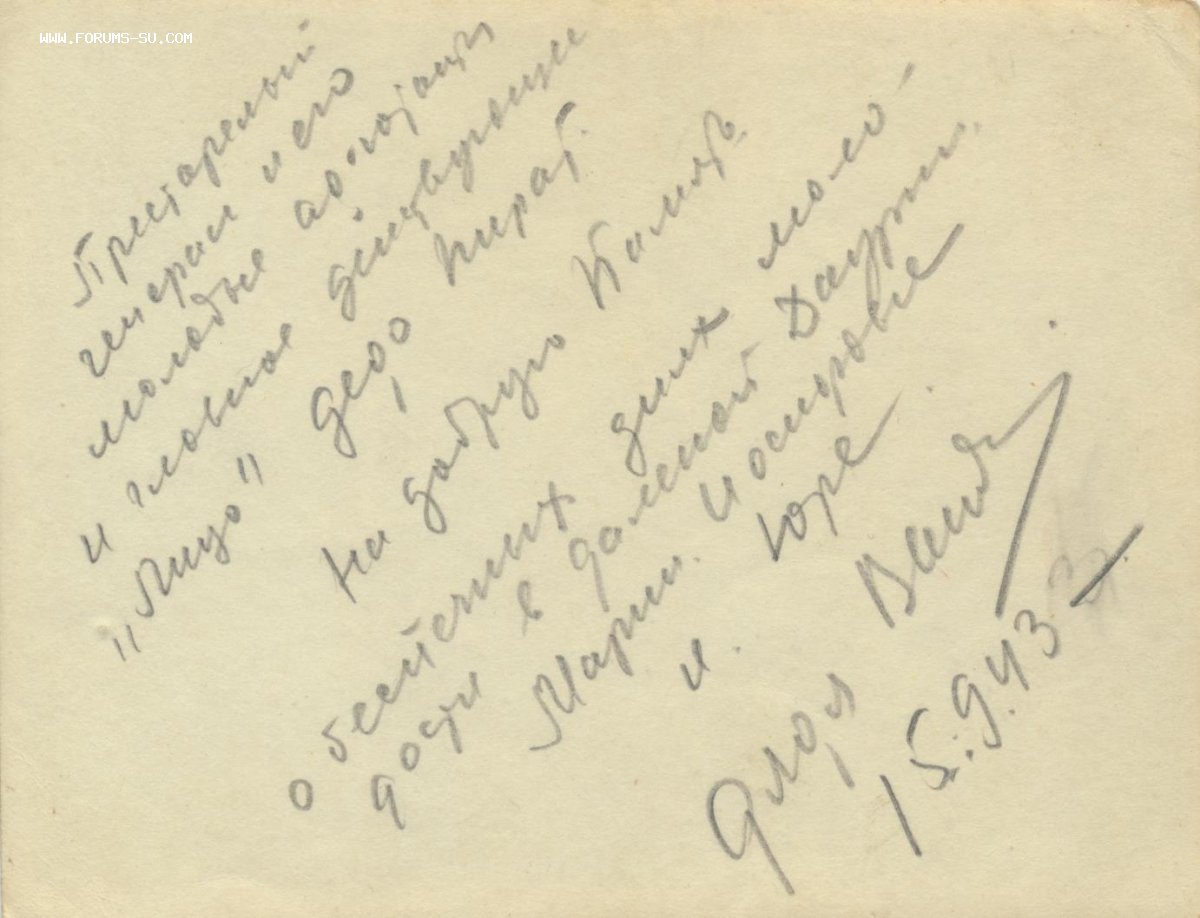 WWW.FORUMS-SU.COM
Престарелый
генерал и его
молодые ад'ютанты
и главное действующее
"лицо" дед пират.
На добрую память
о беспечных днях моло-
дости в далекой Даурии.
Марии Иосифовне
и Юре.
Дядя Ваня
15.9.43